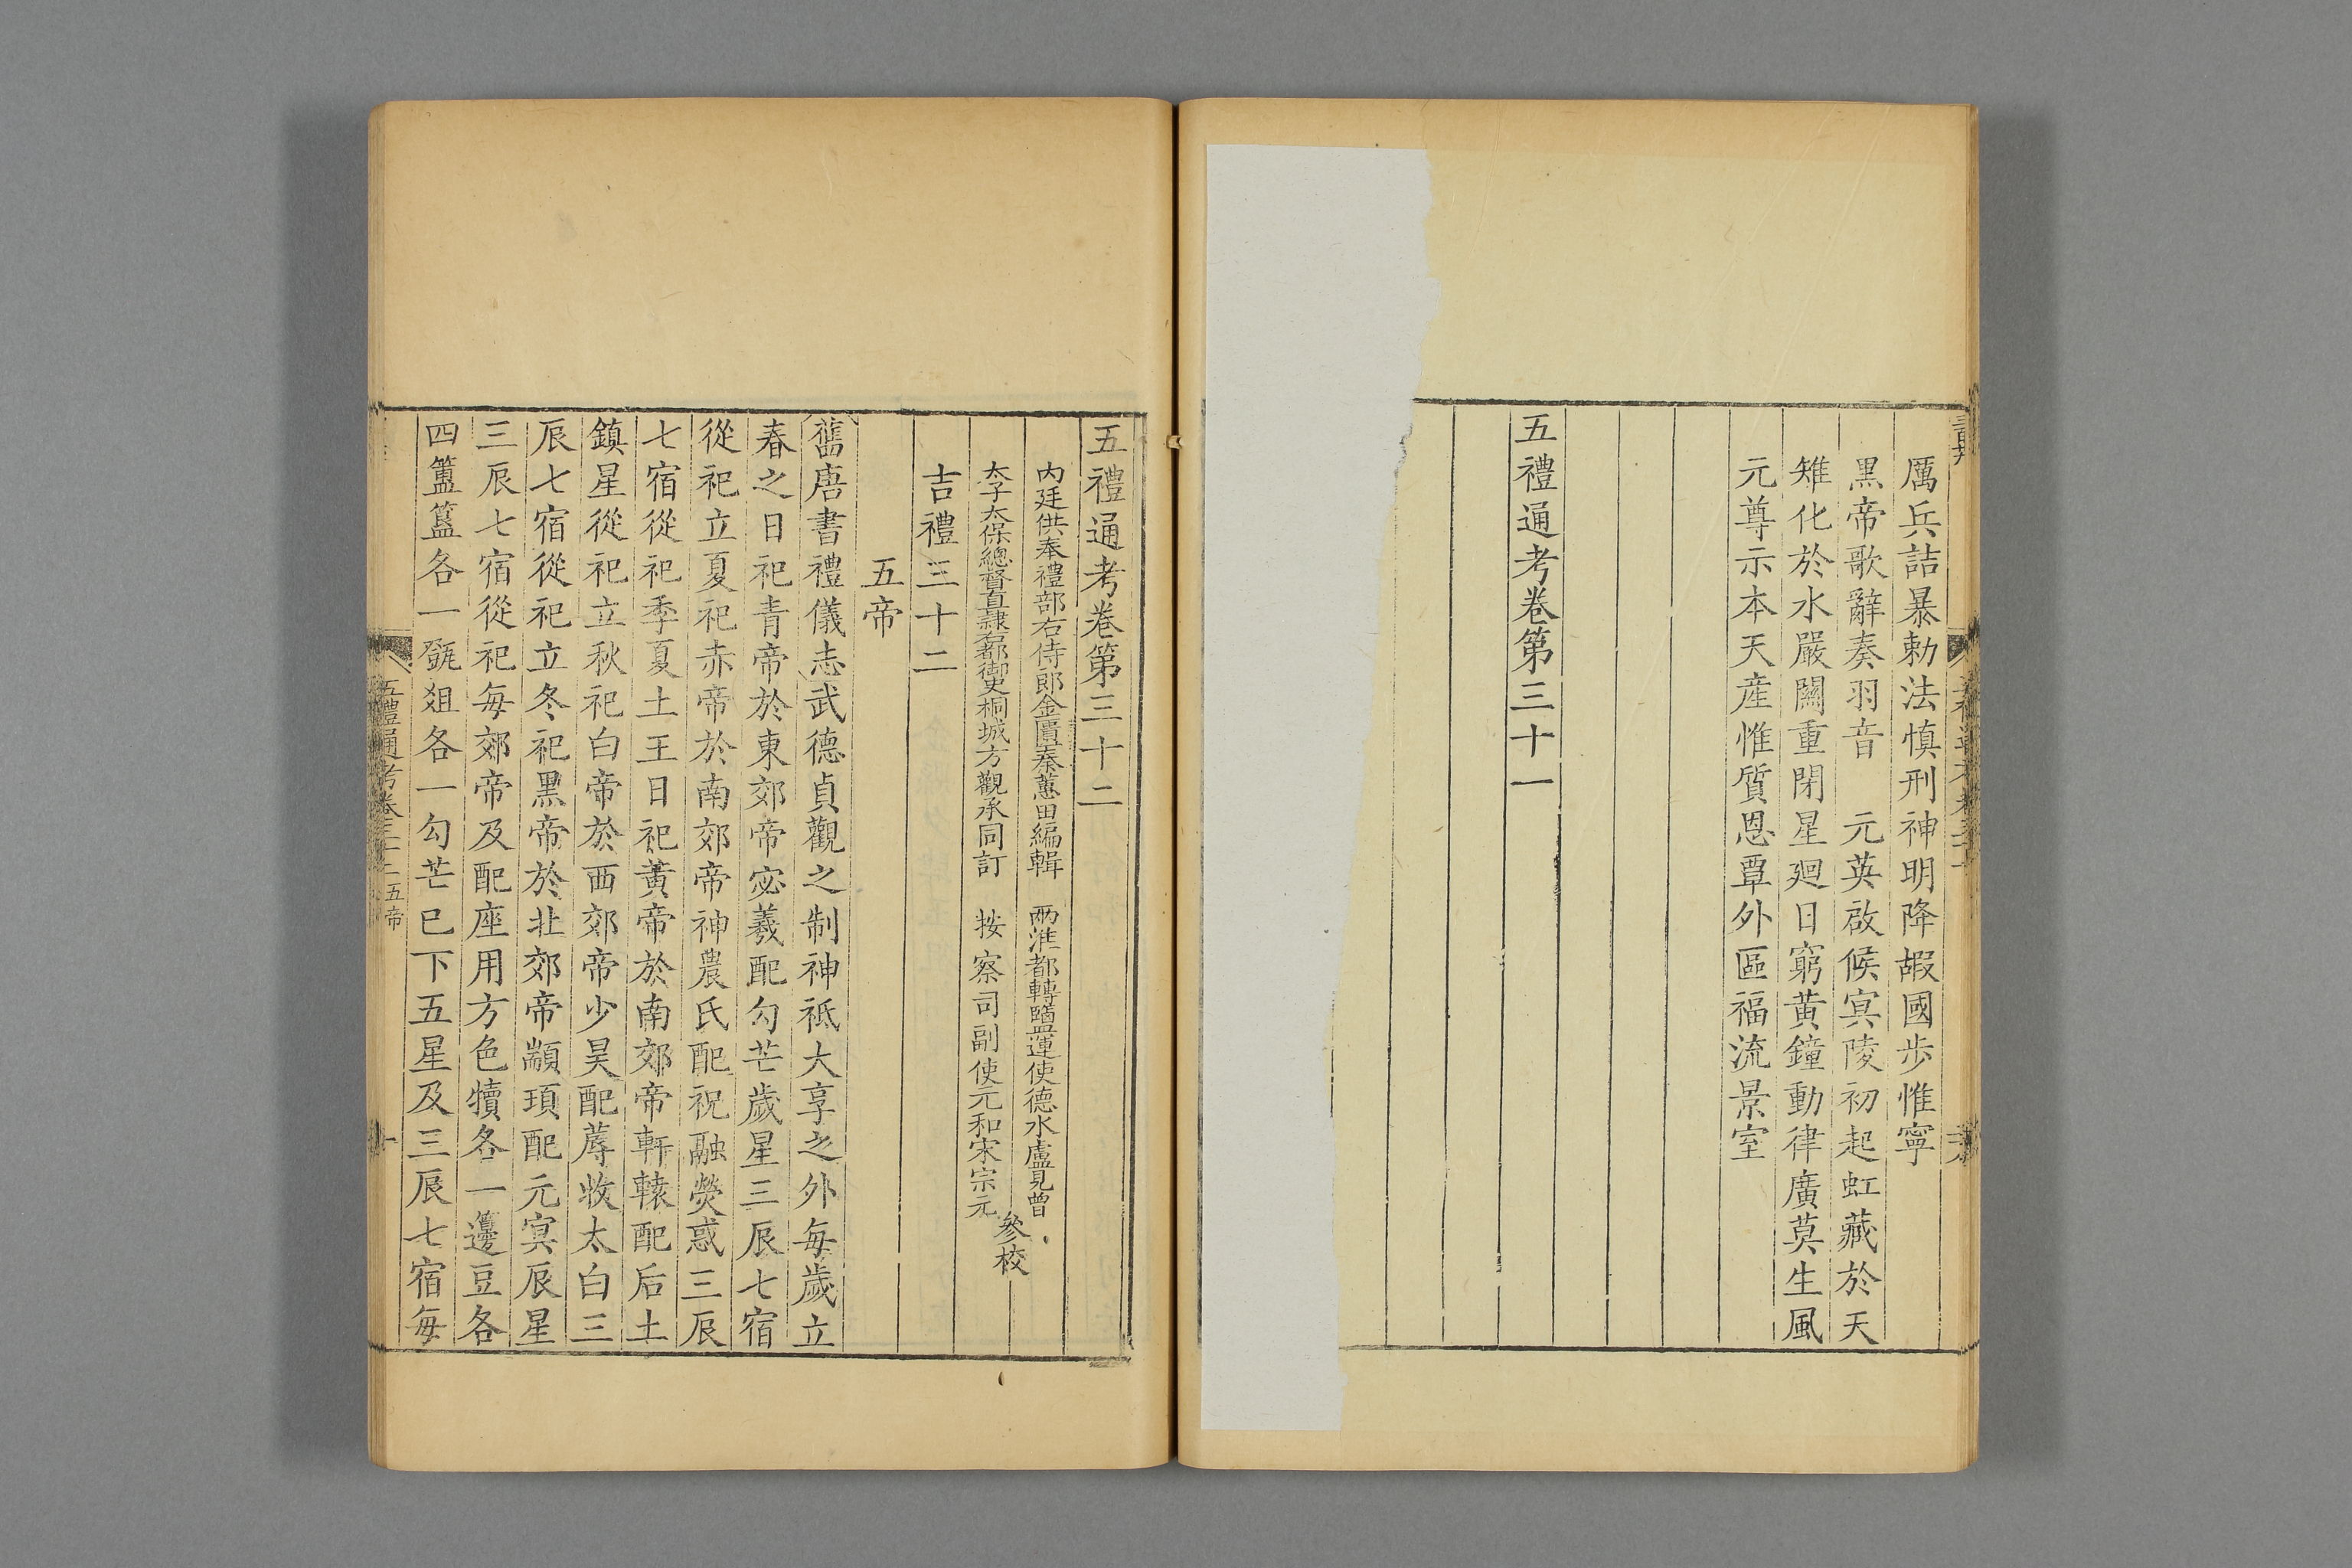 厲兵詰暴勅法慎刑神明降嘏國步惟寧
黑帝歌辭奏羽音　元英啟候冥陵初起虹藏於天
雉化於水嚴關重閉星廻日窮黃鐘動律廣莫生風
元尊示本天産惟質恩覃外區福流景室
五禮通考卷第三十一
五禮通考卷第三十二
内廷供奉禮部右侍郎金匱秦蕙田編輯　兩淮都轉鹽運使德水盧見曾
太子太保總督直隸右都御史桐城方觀承同訂　按察司副使元和宋宗元
參校
吉禮三十二
五帝
舊唐書禮儀志武德貞觀之制神祗大享之外每歲立
春之日祀青帝於東郊帝宓羲配勾芒歲星三辰七宿
從祀立夏祀赤帝於南郊帝神農氏配祝融熒惑三辰
七宿從祀季夏土王日祀黃帝於南郊帝軒轅配后土
鎮星從祀立秋祀白帝於西郊帝少昊配蓐收太白三
辰七宿從祀立冬祀黑帝於北郊帝顓頊配元冥辰星
三辰七宿從祀每郊帝及配座用方色犢各一籩豆各
四簠簋各一㽅俎各一勾芒已下五星及三辰七宿每
五禮通考卷三十二五帝